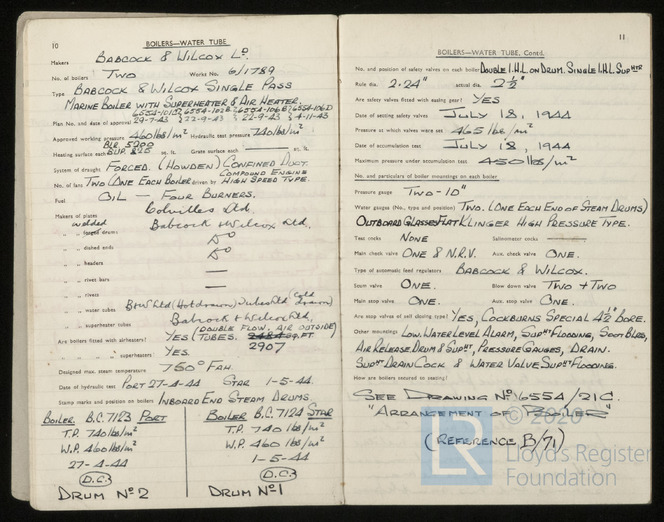 10
BOILERS—WATER TUBE.
Makers BABCOCK & WILCOX LD.
No. of boilers TWO Works No. 6/1789
Type BABCOCK & WILCOX SINGLE PASS
MARINE BOILER WITH SUPERHEATER & AIR HEATER.
6554-101D 6554-102 6554-106E 6554-106D
Plan No. and date of approval 29-7-43 22-9-43 22-9-43 4-11-43
Approved working pressure 460 lbs/in² Hydraulic test pressure 740 lbs/in²
BLR. 5900
Heating surface each SUP. 825 sq. ft. Grate surface each — sq. ft.
System of draught FORCED. (HOWDEN) CONFINED DUCT.
COMPOUND ENGINE
No. of fans TWO (ONE EACH BOILER) driven by HIGH SPEED TYPE.
Fuel OIL — FOUR BURNERS.
Makers of plates Colvilles Ltd.
" " welded forged drums Babcock & Wilcox Ltd.
" " dished ends Do
" " headers Do
" " rivet bars —
" " rivets —
" " water tubes B&W Ltd (Hot drawn) Tubes Ltd (Cold Drawn)
" " superheater tubes Babcock & Wilcox Ltd.
(DOUBLE FLOW, AIR OUTSIDE)
Are boilers fitted with airheaters? YES (TUBES. 2484 SQ. FT.
" " " superheaters? YES. 2907
Designed max. steam temperature 750° FAH.
Date of hydraulic test PORT 27-4-44 STAR 1-5-44.
Stamp marks and position on boilers INBOARD END STEAM DRUMS
BOILER B.C. 7123 PORT
T.P. 740 lbs/in²
W.P. 460 lbs/in²
27-4-44
D.C.
DRUM No 2
BOILER B.C. 7124 STAR
T.P. 740 lbs/in²
W.P. 460 lbs/in²
1-5-44
D.C.
DRUM No 1
11
BOILERS—WATER TUBE, Contd.
No. and position of safety valves on each boiler DOUBLE I.H.L. ON DRUM. SINGLE I.H.L. SUPHTR
Rule dia. 2·24" actual dia. 2½"
Are safety valves fitted with easing gear? YES
Date of setting safety valves JULY 18, 1944
Pressure at which valves were set 465 lbs/in²
Date of accumulation test JULY 18, 1944
Maximum pressure under accumulation test 480 lbs/in²
No. and particulars of boiler mountings on each boiler
Pressure gauge TWO-10"
Water gauges (No., type and position) TWO. (ONE EACH END OF STEAM DRUMS)
OUTBOARD GLASSES FLAT KLINGER HIGH PRESSURE TYPE.
Test cocks NONE Salinometer cocks —
Main check valve ONE & N.R.V. Aux. check valve ONE.
Type of automatic feed regulators BABCOCK & WILCOX.
Scum valve ONE. Blow down valve TWO + TWO
Main stop valve ONE. Aux. stop valve ONE.
Are stop valves of self closing type? YES, COCKBURNS SPECIAL 4½" BORE.
Other mountings LOW WATER LEVEL ALARM, SUPHT FLOODING, SOOT BLRS,
AIR RELEASE DRUM & SUPHT, PRESSURE GAUGES, DRAIN.
SUPHT DRAIN COCK & WATER VALVE SUPHT FLOODING.
How are boilers secured to seating?
SEE DRAWING No 16554/21C.
"ARRANGEMENT OF BOILER"
(REFERENCE B/71)
© 2020
LR
Lloyd's Register
Foundation